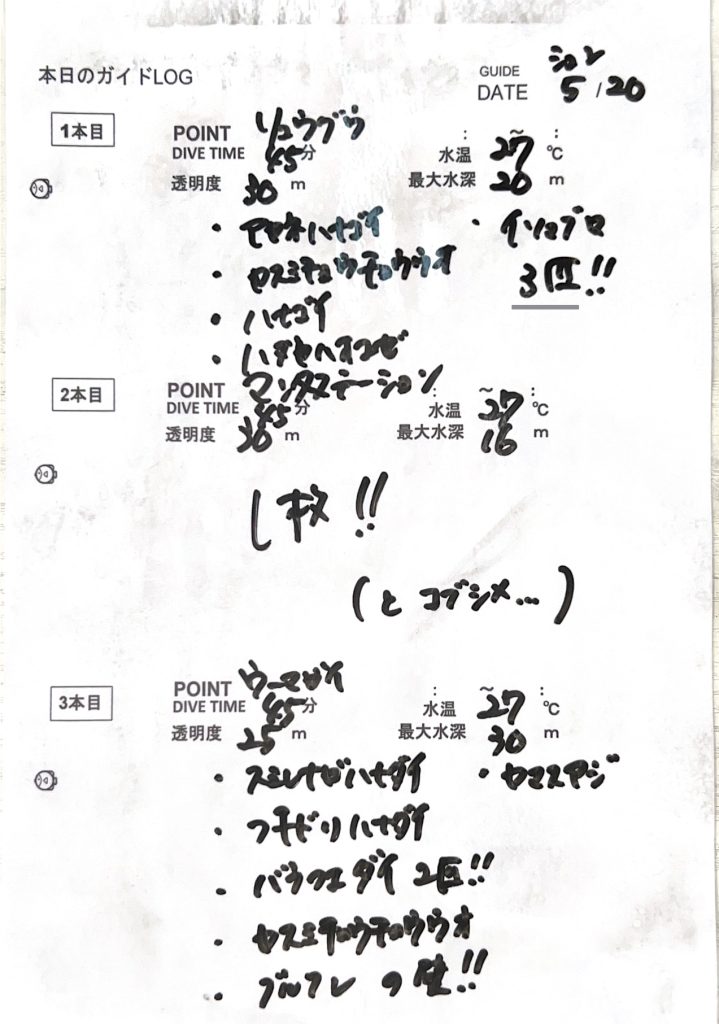 本日のガイドLOG
GUIDE ション
DATE 5/20
1本目
POINT リュウグウ
DIVE TIME 45分
水温 ~ 27 ℃
透明度 30 m
最大水深 20 m
・アカネハナゴイ
・イソマグロ
3匹!!
・カスミチョウチョウウオ
・ハナゴイ
・ハダカハオコゼ
2本目
POINT マンタステーション
DIVE TIME 45分
水温 ~ 27 ℃
透明度 30 m
最大水深 16 m
し枚!!
(と コブシメ…)
3本目
POINT ウーマガイ
DIVE TIME 45分
水温 ~ 27 ℃
透明度 25 m
最大水深 30 m
・スミレナガハナダイ
・カマスアジ
・フチドリハナダイ
・バラフエダイ 2匹!!
・カスミチョウチョウウオ
・グルクン の壁!!